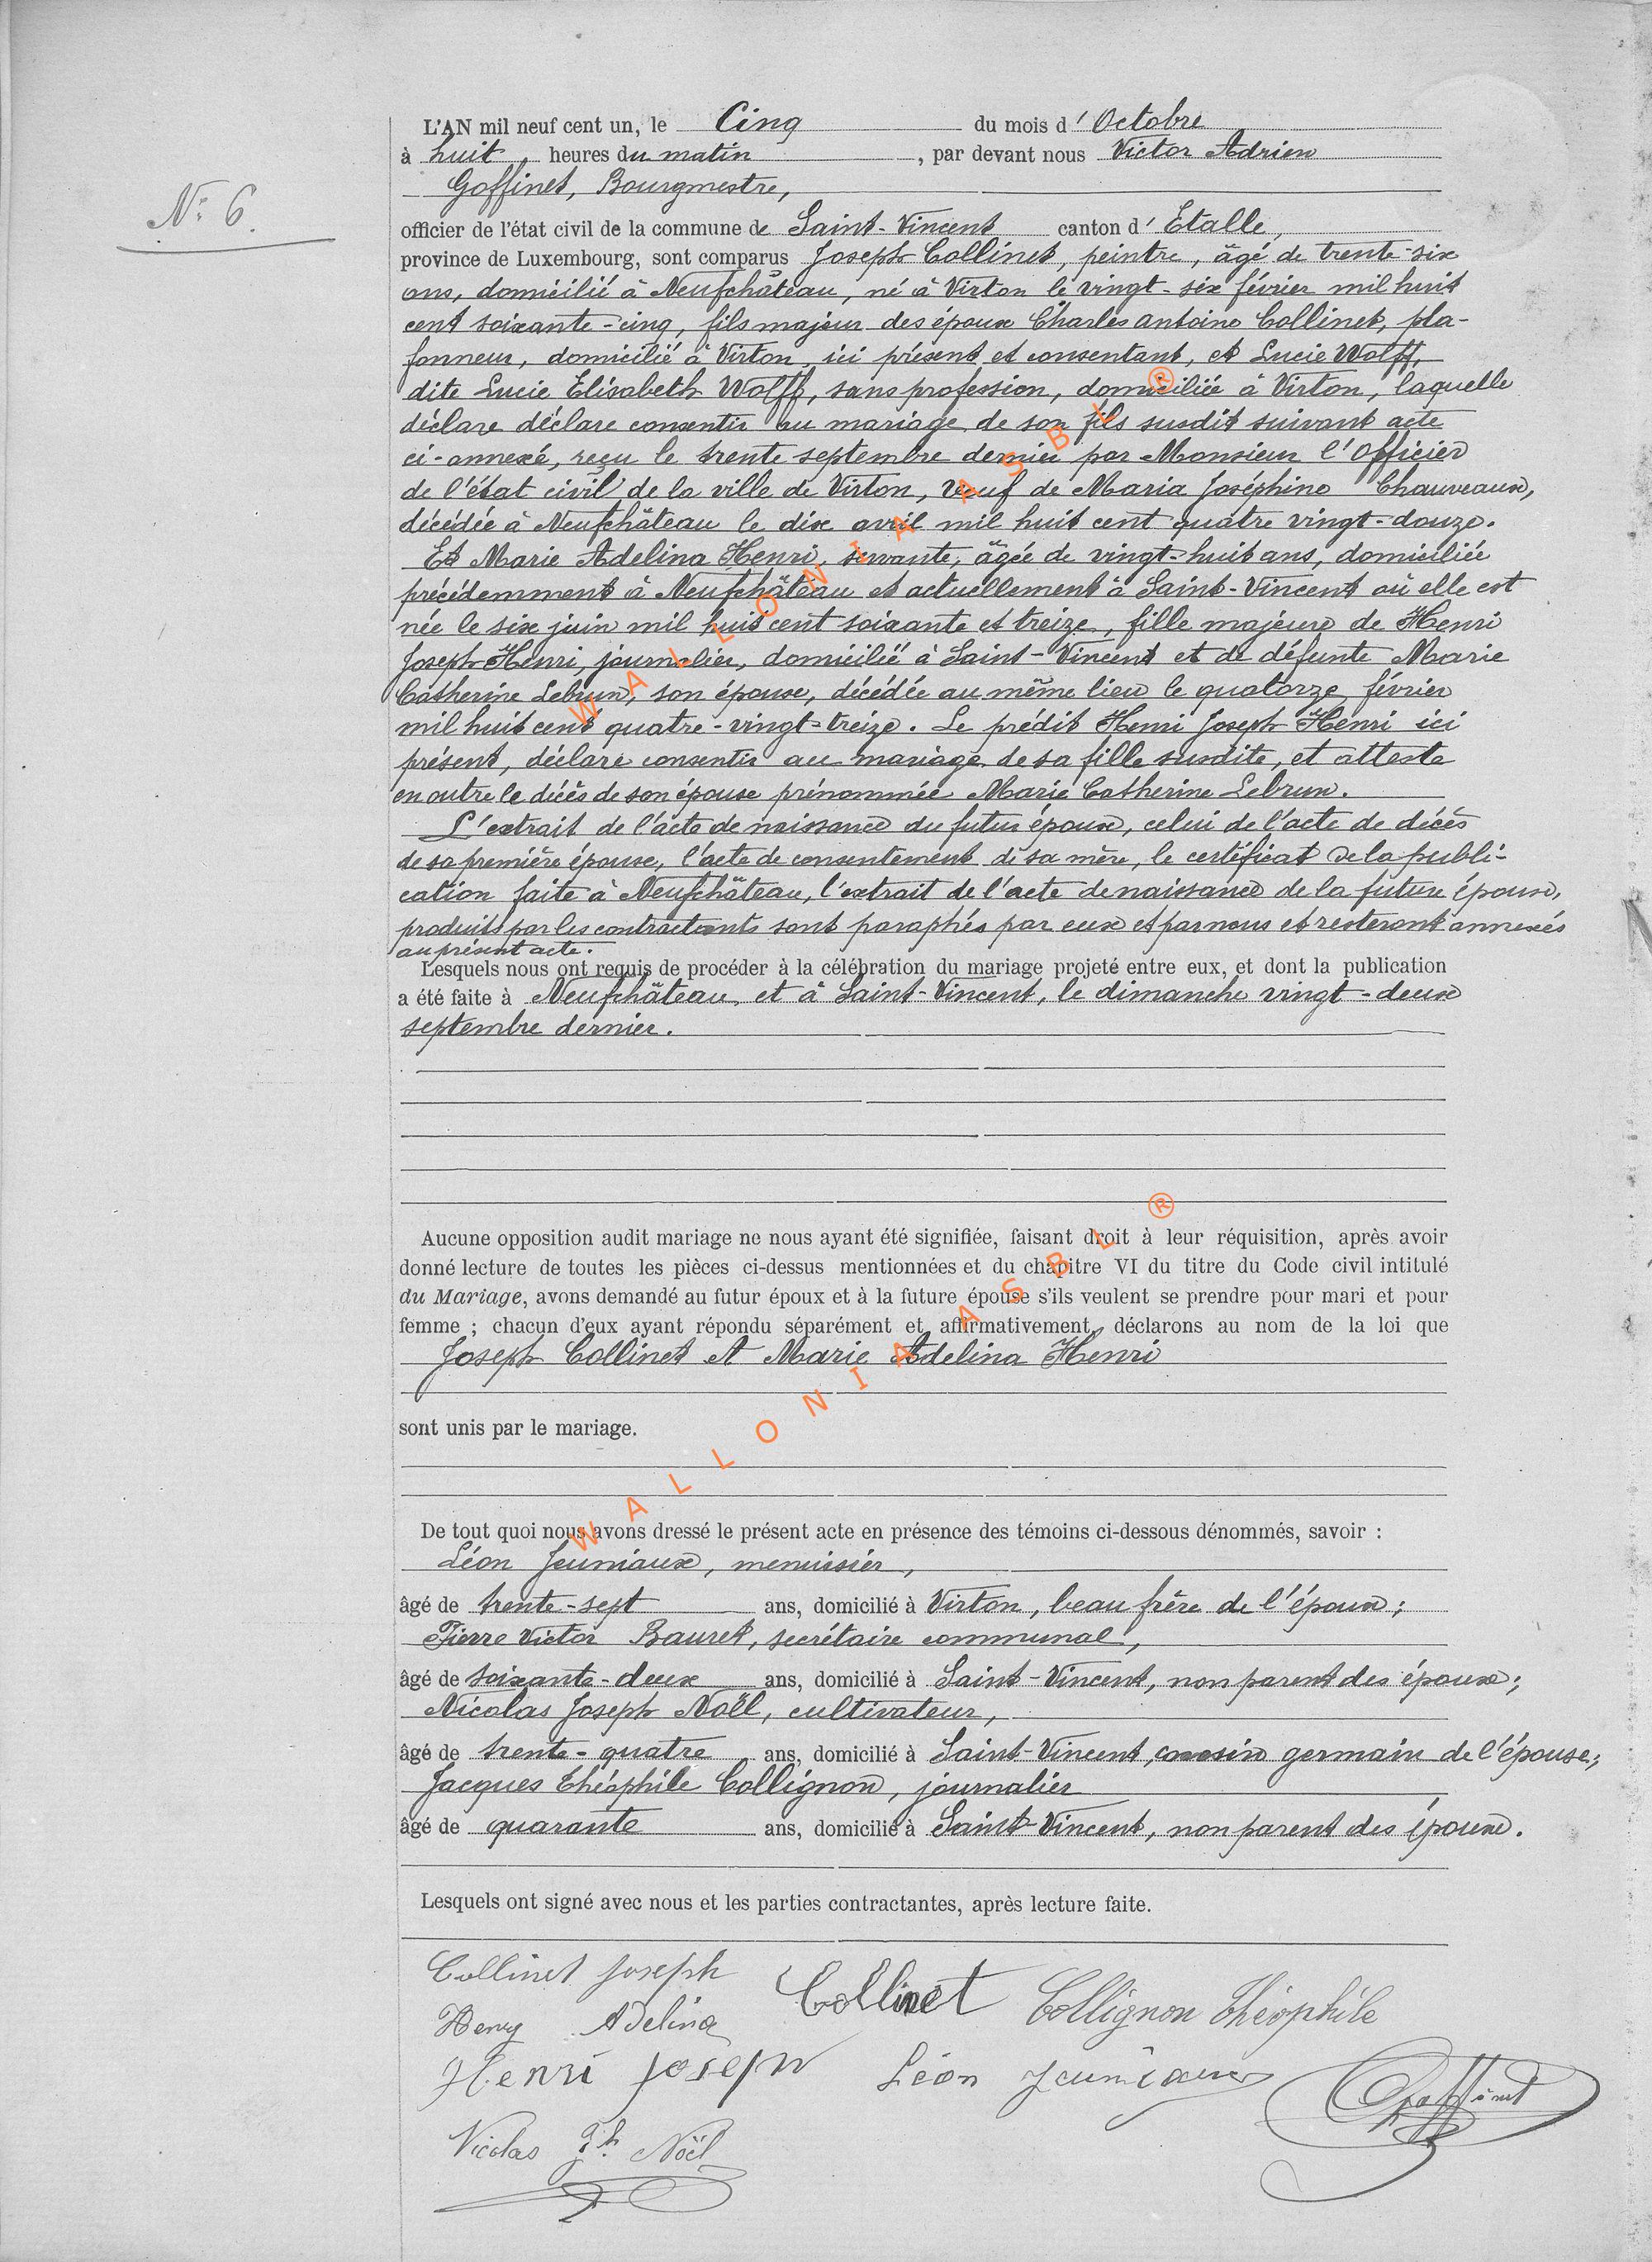 N° 6.
L'AN mil neuf cent un, le Cinq du mois d' Octobre
à huit, heures du matin, par devant nous Victor Adrien
Goffinet, Bourgmestre,
officier de l'état civil de la commune de Saint-Vincent canton d' Etalle,
province de Luxembourg, sont comparus Joseph Collinet, peintre, âgé de trente-six
ans, domicilié à Neufchâteau, né à Virton le vingt-six février mil huit
cent soixante-cinq, fils majeur des époux Charles Antoine Collinet, pla-
fonneur, domicilié à Virton, ici présent et consentant, et Lucie Wolff,
dite Lucie Elisabeth Wolff, sans profession, domiciliée à Virton, laquelle
déclare déclare consentir au mariage de son fils susdit suivant acte
ci-annexé, reçu le trente septembre dernier par Monsieur l'Officier
de l'état civil de la ville de Virton, veuf de Maria Joséphine Chauveaux,
décédée à Neufchâteau le dix avril mil huit cent quatre vingt-douze.
Et Marie Adelina Henri, servante, âgée de vingt-huit ans, domiciliée
précédemment à Neufchâteau et actuellement à Saint-Vincent où elle est
née le six juin mil huit cent soixante et treize, fille majeure de Henri
Joseph Henri, journalier, domicilié à Saint-Vincent et de défunte Marie
Catherine Lebrun, son épouse, décédée au même lieu le quatorze février
mil huit cent quatre-vingt-treize. Le prédit Henri Joseph Henri ici
présent, déclare consentir au mariage de sa fille susdite, et atteste
en outre le décès de son épouse prénommée Marie Catherine Lebrun.
L'extrait de l'acte de naissance du futur époux, celui de l'acte de décès
de sa première épouse, l'acte de consentement de sa mère, le certificat de la publi-
cation faite à Neufchâteau, l'extrait de l'acte de naissance de la future épouse,
produits par les contractants sont paraphés par eux et par nous et resteront annexés
au présent acte.
Lesquels nous ont requis de procéder à la célébration du mariage projeté entre eux, et dont la publication
a été faite à Neufchâteau et à Saint-Vincent, le dimanche vingt-deux
septembre dernier.
Aucune opposition audit mariage ne nous ayant été signifiée, faisant droit à leur réquisition, après avoir
donné lecture de toutes les pièces ci-dessus mentionnées et du chapitre VI du titre du Code civil intitulé
du Mariage, avons demandé au futur époux et à la future épouse s'ils veulent se prendre pour mari et pour
femme ; chacun d'eux ayant répondu séparément et affirmativement, déclarons au nom de la loi que
Joseph Collinet et Marie Adelina Henri
sont unis par le mariage.
De tout quoi nous avons dressé le présent acte en présence des témoins ci-dessous dénommés, savoir :
Léon Jeuniaux, menuisier,
âgé de trente-sept ans, domicilié à Virton, beau frère de l'époux;
Pierre Victor Bauret, secrétaire communal,
âgé de soixante-deux ans, domicilié à Saint-Vincent, non parent des époux;
Nicolas Joseph Noël, cultivateur,
âgé de trente-quatre ans, domicilié à Saint-Vincent, cousin germain de l'épouse;
Jacques Théophile Collignon, journalier
âgé de quarante ans, domicilié à Saint-Vincent, non parent des époux.
Lesquels ont signé avec nous et les parties contractantes, après lecture faite.
Collinet Joseph
Collinet Collignon Théophile
Henry Adelina
Henri Joseph Léon Jeuniaux Goffinet
Nicolas Jh Noël
WALLONIA ASBL ®
WALLONIA ASBL ®